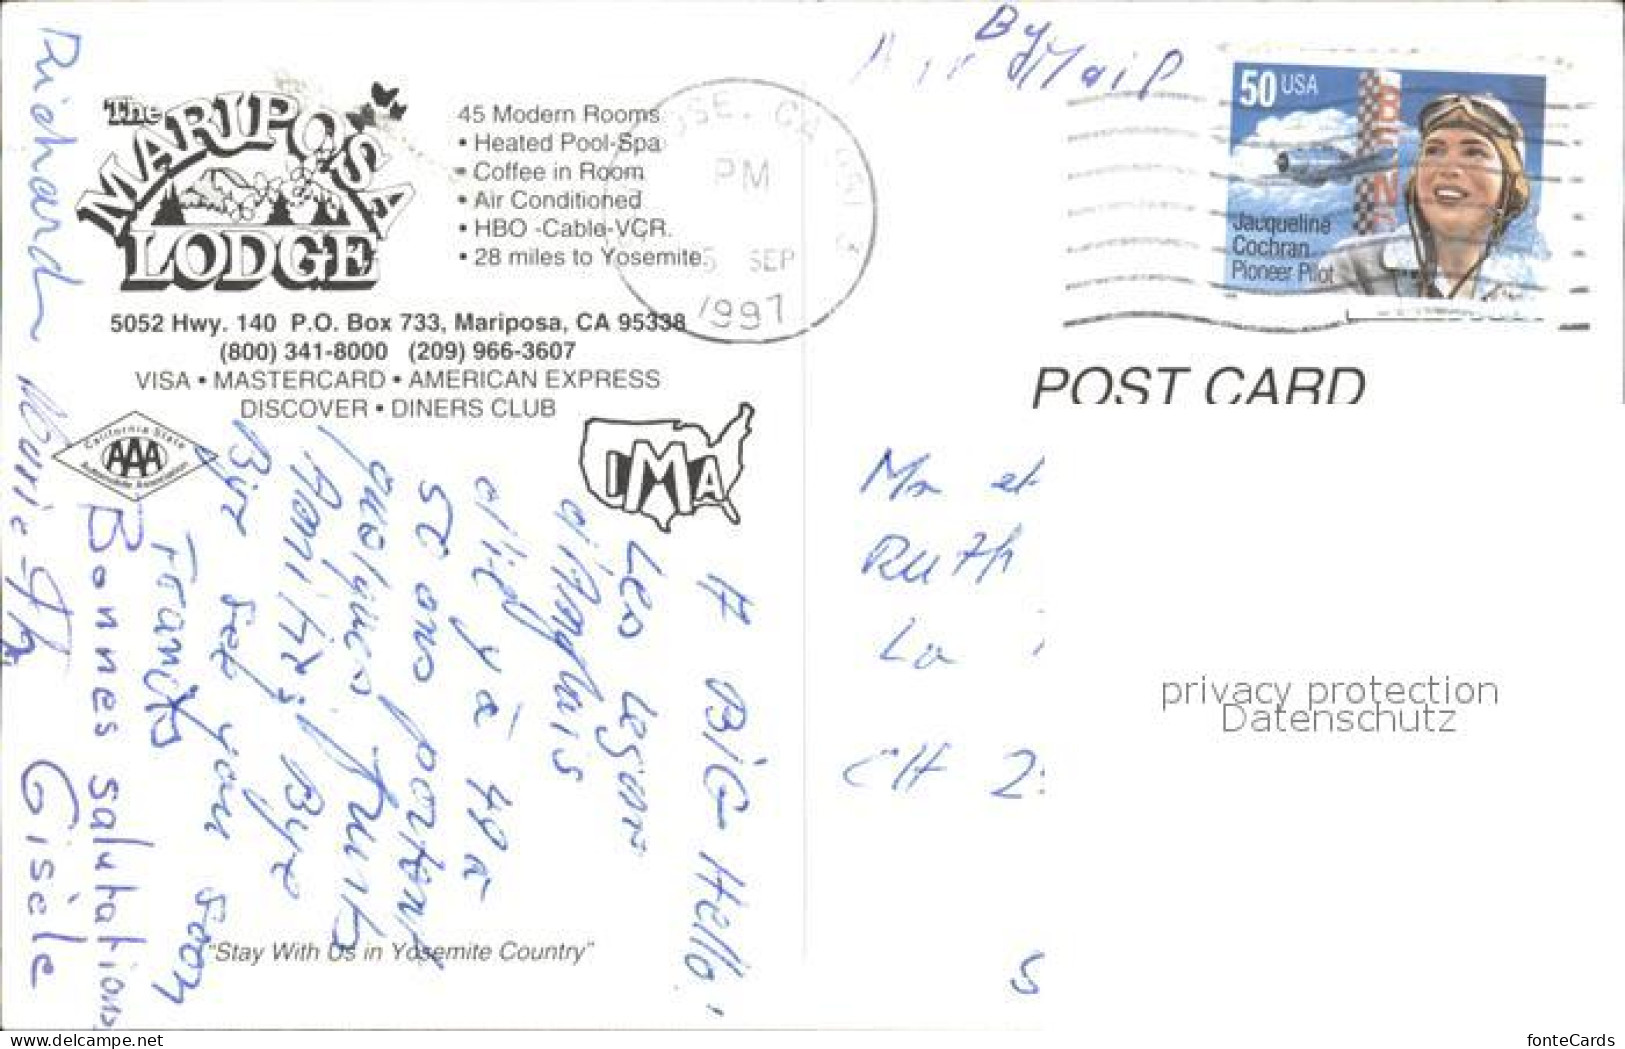 By
Air Mail
The
MARIPOSA
LODGE
45 Modern Rooms
• Heated Pool-Spa
• Coffee in Room
• Air Conditioned
• HBO -Cable-VCR
• 28 miles to Yosemite
5052 Hwy. 140 P.O. Box 733, Mariposa, CA 95338
(800) 341-8000 (209) 966-3607
VISA • MASTERCARD • AMERICAN EXPRESS
DISCOVER • DINERS CLUB
California State
AAA
Automobile Association
IMA
CA
PM
5 SEP
1997
50 USA
Jacqueline
Cochran
Pioneer Pilot
POST CARD
A BiG Hello!
Les leçons
d'Anglais
d'il y a
ont portant
quelques fruits
Amitiés Bye
Bye see you soon
Francis
Bonnes salutations
Gisèle
Richard
Mr et
Ruth
La
CH 2
S
"Stay With Us in Yosemite Country"
privacy protection
Datenschutz
www.delcampe.net
fonteCards